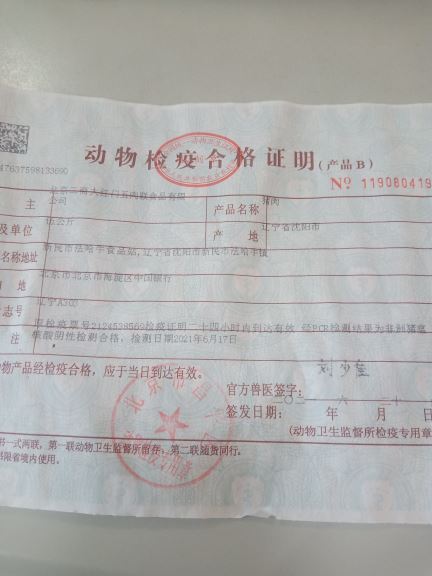 动物检疫合格证明(产品B)
47637598133690
No 119080419
主
公司
产品名称
猪肉
及单位
伍公斤
产 地
辽宁省沈阳市
名称地址
新民市法哈学食品站,辽宁省沈阳市新民市法哈学镇
北京市北京市海淀区中国银行
志号
辽宁A303
注
原检疫票号2124538569检疫证明二十四小时内到达有效 经PCR检测结果为非洲猪瘟
核酸阴性检测合格,检测日期2021年6月17日
动物产品经检疫合格,应于当日到达有效。
官方兽医签字:
签发日期: 年 月 日
(动物卫生监督所检疫专用章
书一式两联,第一联动物卫生监督所留存,第二联随货同行。
书限省境内使用。
北京市昌